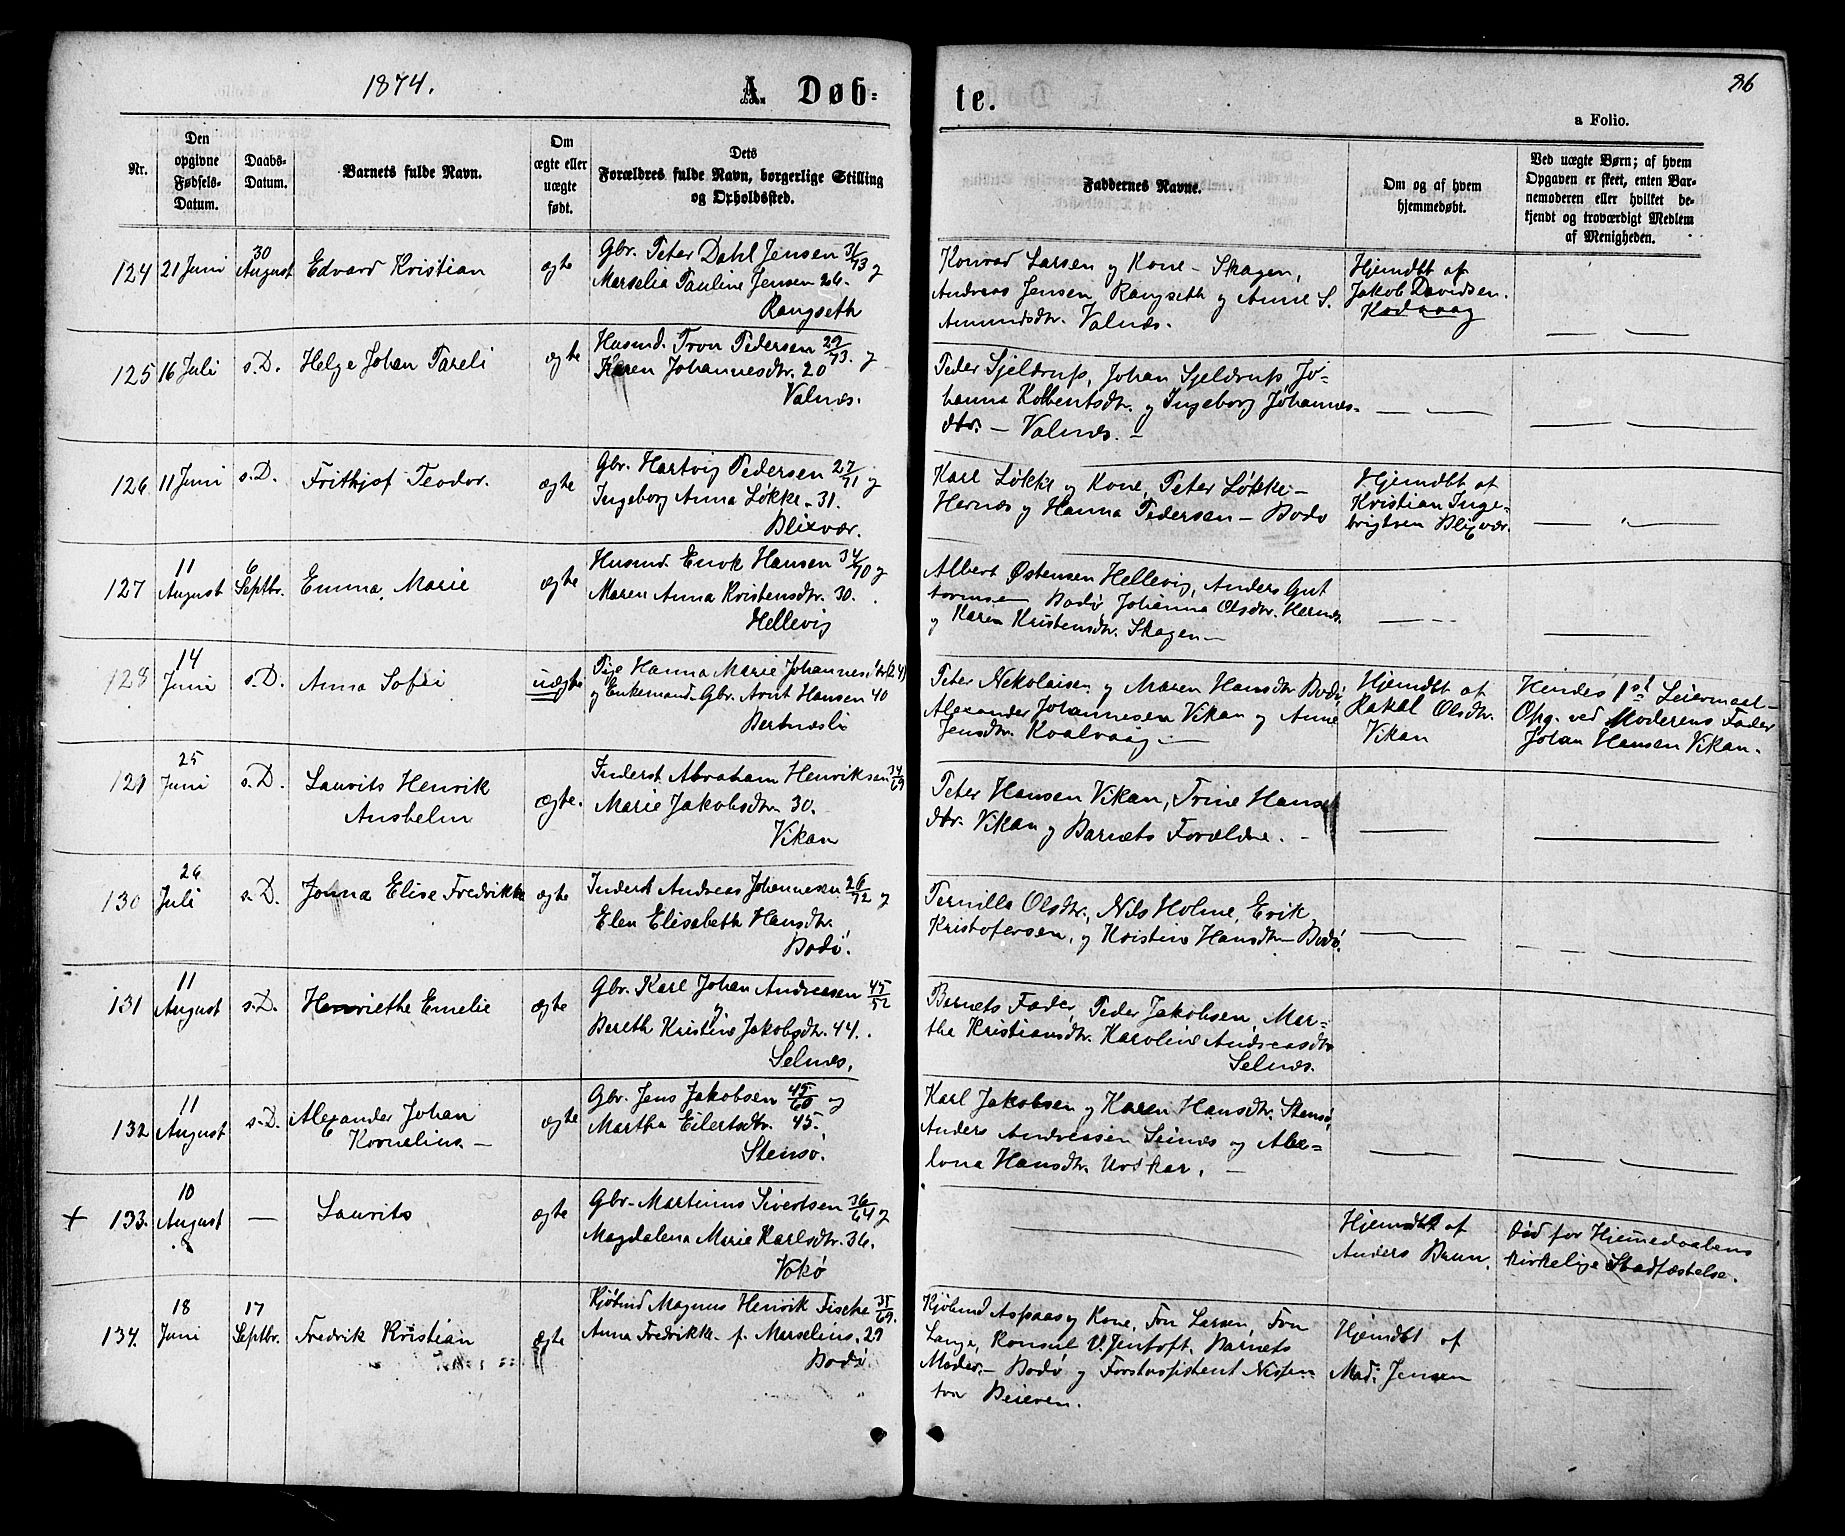 1874.
A. Døb-
te.
86
a Folio.
Nr.
Den
opgivne
Fødsels-
Datum.
Daabs-
Datum.
Barnets fulde Navn.
Om
ægte eller
uægte
født.
Dets
Forældres fulde Navn, borgerlige Stilling
og Opholdssted.
Faddernes Navne.
Om og af hvem
hjemmedøbt.
Ved uægte Børn; af hvem
Opgaven er skeet, enten Bar-
nemoderen eller hvilket be-
kjendt og troværdigt Medlem
af Menigheden.
124 21 Juni 30 August Edvard Kristian ægte
Gbr. Peter Dahl Jensen 31/73 og
Marselia Pauline Jensen 26.
Rangseth
Konrad Larsen og Kone - Skagen,
Andreas Jensen, Rangseth og Anne S.
Amundsdtr. Valnæs.
Hjemdbt af
Jakob Davidsen.
Kodvaag
125 16 Juli s.D. Helge Johan Pareli ægte
Husmd. Tron Pedersen 29/73. og
Karen Johannesdtr. 20
Valnæs.
Peder Sjeldrup, Johan Sjeldrup, Jo-
hanna Kolbentsdtr. og Ingeborg Johannes-
dtr. - Valnæs. -
126 11 Juni s.D. Frithjof Teodor. ægte
Gbr. Hartvig Pedersen 27/71 og
Ingeborg Anna Løkke. 31.
Blixvær.
Karl Løkke og Kone, Peter Løkke -
Hernæs og Hanna Pedersen - Bodø
Hjemdbt af
Kristian Inge-
brigtsen Blixvær.
127 11 August 6 Septbr. Emma Marie ægte
Husmd. Enok Hansen 34/70 og
Maren Anna Kristensdtr. 30.
Hellevig
Albert Østensen Hellevig, Anders Gut
tormsen Bodø, Johanna Olsdtr. Hernæs.
og Karen Kristensdtr. Skagen -
128 14 Juni s.D. Anna Sofie uægte
Pige Hanna Marie Johannesdtr. 24
og Enkemand Gbr. Arnt Hansen 40
Bertnæsli
Peter Nikolaisen og Maren Hansdtr Bodø,
Alexander Johannesen Vikan og Anne
Jensdtr. Kvalvaag -
Hjemdbt af
Rakel Olsdtr.
Vikan
Hendes 1st Leiermaal -
Opg. ved Moderens Fader
Johan Hansen Vikan.
129 25 Juni s.D. Laurits Henrik
Anshelm ægte.
Inderst Abraham Henriksen 34/69
Marie Jakobsdtr. 30.
Vikan
Peter Hansen Vikan, Trine Hans
dtr. Vikan og Barnets Forældre. -
130 26 Juli s.D. Jonna Elise Fredrikke ægte
Inderst Andreas Johannesen 26/72 og
Elen Elisabeth Hansdtr.
Bodø.
Pernilla Olsdtr., Nils Holme, Erik
Kristofersen, og Kristine Hansdtr - Bodø.
131 11 August s.D. Henriethe Emelie ægte
Gbr. Karl Johan Andreasen 45/52
og
Bereth Kristine Jakobsdtr. 44.
Selnæs.
Barnets Fader, Peder Jakobsen, Mar-
tha Kristiansdtr. Karoline Andreasdtr
Selnæs.
132 11 August s.D. Alexander Johan
Kornelius. - ægte
Gbr. Jens Jakobsen 45/60 og
Martha Eilertsdtr. 45.
Stensø.
Karl Jakobsen og Karen Hansdtr. Stensø,
Anders Andreassen Seines og Abe-
lona Hansdtr.
+ 133. 10 August - Laurits ægte
Gbr. Martinus Sivertsen 36/64 og
Magdalena Marie Karlsdtr. 36.
Vokø
Hjemdbt af
Anders Brun.
Død før Hjemmedaabens
kirkelige Stadfæstelse.
134. 18 Juni 17 Septbr. Fredrik Kristian ægte
Kjøbmd Magnus Henrik Fische 35/69.
Anna Fredrikke f. Marselius. 29
Bodø.
Kjøbmd Aspaas og Kone, Fru Larsen, Fru
Lange, Konsul V. Jentoft. Barnets
Moder. - Bodø og Forstassistent Nissen
Beieren.
Hjemdbt af
Mad. Jensen